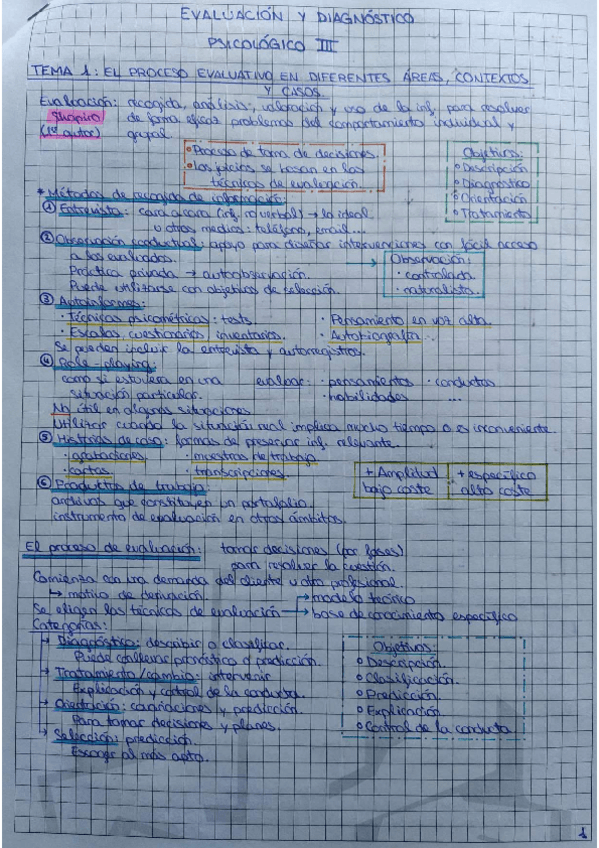 EVALUACIÓN Y DIAGNÓSTICO
PSICOLÓGICO III
TEMA 1: EL PROCESO EVALUATIVO EN DIFERENTES ÁREAS, CONTEXTOS
Y CASOS.
Evaluación: recogida, análisis, valoración y uso de la inf. para resolver
Shapiro de forma eficaz problemas del comportamiento individual y
(1er autor) grupal.
Proceso de toma de decisiones.
Los juicios se basan en las
técnicas de evaluación.
Objetivos:
Descripción
Diagnóstico
Orientación
Tratamiento
* Métodos de recogida de información:
① Entrevista: cara a cara (inf. no verbal) → la ideal
u otros medios: teléfono, email...
② Observación conductual: apoyo para diseñar intervenciones con fácil acceso
a los evaluados.
Práctica privada → autoobservación.
Puede utilizarse con objetivos de selección.
→ Observación:
· controlada.
· naturalista.
③ Autoinformes:
· Técnicas psicométricas: tests. · Pensamiento en voz alta.
· Escalas, cuestionarios, inventarios. · Autobiografía...
Se pueden incluir la entrevista y autorregistros.
④ Role-playing:
como si estuviera en una evaluar: · pensamientos · conductas
situación particular. · habilidades ...
No útil en algunas situaciones
Utilizar cuando la situación real implica mucho tiempo o es inconveniente.
⑤ Historias de caso: formas de presentar inf. relevante.
· grabaciones · muestras de trabajo
· cartas · transcripciones.
+ Amplitud + específico
bajo coste alto coste
⑥ Productos de trabajo:
archivos que constituyen un portafolio.
instrumento de evaluación en otros ámbitos.
El proceso de evaluación: tomar decisiones (por fases)
para resolver la cuestión.
Comienza con una demanda del cliente u otro profesional
↳ motivo de derivación. → modelo teórico
Se eligen las técnicas de evaluación → base de conocimiento específico
Categorías:
→ Diagnóstico: describir o clasificar.
Puede conllevar pronóstico o predicción.
→ Tratamiento/cambio: intervenir
Explicación y control de la conducta.
→ Orientación: cogniciones y predicción.
Para tomar decisiones y planes.
→ Selección: predicción.
Escoger al más apto.
Objetivos:
Descripción.
Clasificación.
Predicción.
Explicación.
Control de la conducta
1